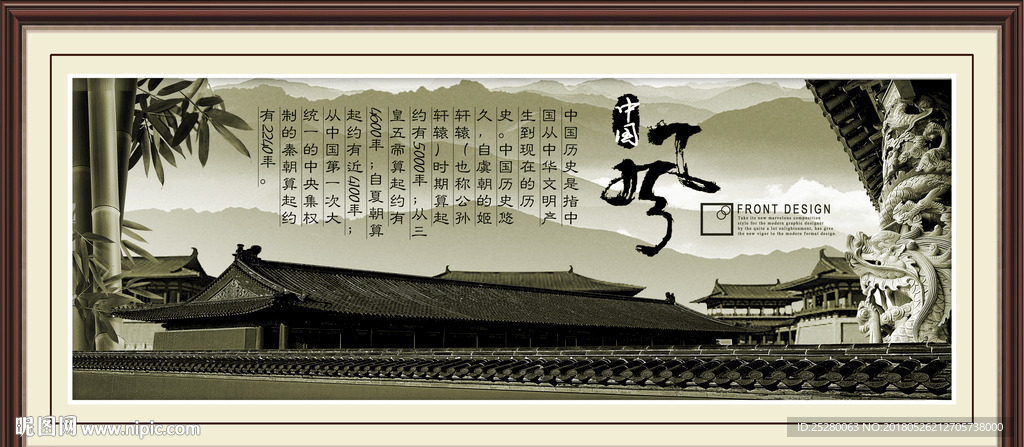 中国
中国历史是指中
国从中华文明产
生到现在的历
史。中国历史悠
久，自虞朝的姬
轩辕（也称公孙
轩辕）时期算起
约有5000年；从三
皇五帝算起约有
4600年；自夏朝算
起约有近4100年；
从中国第一次大
统一的中央集权
制的秦朝算起约
有2240年。
FRONT DESIGN
Take its new marvelous composition
style for the modern graphic designer
by the quite a lot enlightenment, has give
the new vigor to the modern formal design.
昵图网 www.nipic.com
ID:25280063 NO:20180526212705738000